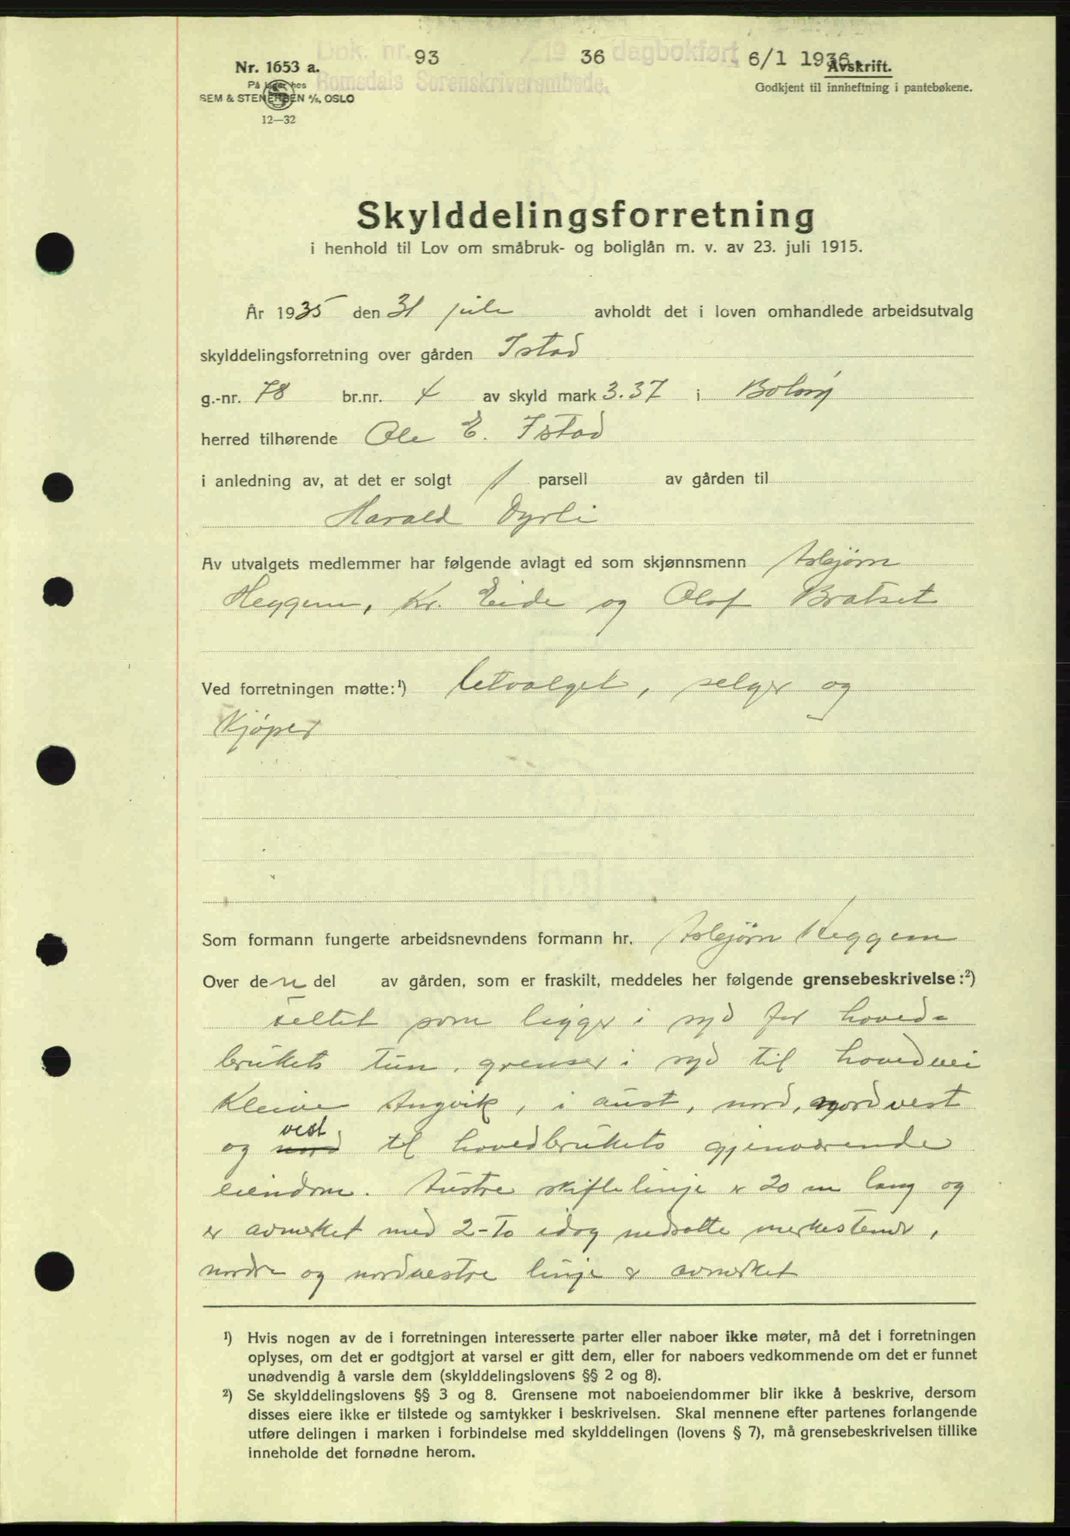 Dok. nr. 93 /19 36 dagbokført 6/1 1936.
Romsdals Sorenskriverembede.
Nr. 1653 a.
På lager hos
SEM & STENERSEN A/S, OSLO
12—32
Avskrift.
Godkjent til innheftning i pantebøkene.
Skylddelingsforretning
i henhold til Lov om småbruk- og boliglån m. v. av 23. juli 1915.
År 1935 den 31 juli avholdt det i loven omhandlede arbeidsutvalg
skylddelingsforretning over gården Istad
g.-nr. 78 br.nr. 4 av skyld mark 3.37 i Bolsøy
herred tilhørende Ole E. Istad
i anledning av, at det er solgt 1 parsell av gården til
Harald Dyrli
Av utvalgets medlemmer har følgende avlagt ed som skjønnsmenn Asbjørn
Heggem, Kr. Eide og Olof Bratset
Ved forretningen møtte:¹) Utvalget, selger og
Kjøper
Som formann fungerte arbeidsnevndens formann hr. Asbjørn Heggem
Over den del av gården, som er fraskilt, meddeles her følgende grensebeskrivelse:²)
Feltet som ligger i syd for hoved=
brukets tun, grenser i syd til hovedvei
Kleive Angvik, i aust, nord, nordvest
og nord vest til hovedbrukets gjenværende
eiendom. Austre skiftelinje er 20 m lang og
er avmerket med 2-to idag nedsatte merkestener,
nordre og nordvestre linje er avmerket
¹) Hvis nogen av de i forretningen interesserte parter eller naboer ikke møter, må det i forretningen
oplyses, om det er godtgjort at varsel er gitt dem, eller for naboers vedkommende om det er funnet
unødvendig å varsle dem (skylddelingslovens §§ 2 og 8).
²) Se skylddelingslovens §§ 3 og 8. Grensene mot naboeiendommer blir ikke å beskrive, dersom
disses eiere ikke er tilstede og samtykker i beskrivelsen. Skal mennene efter partenes forlangende
utføre delingen i marken i forbindelse med skylddelingen (lovens § 7), må grensebeskrivelsen tillike
inneholde det fornødne herom.